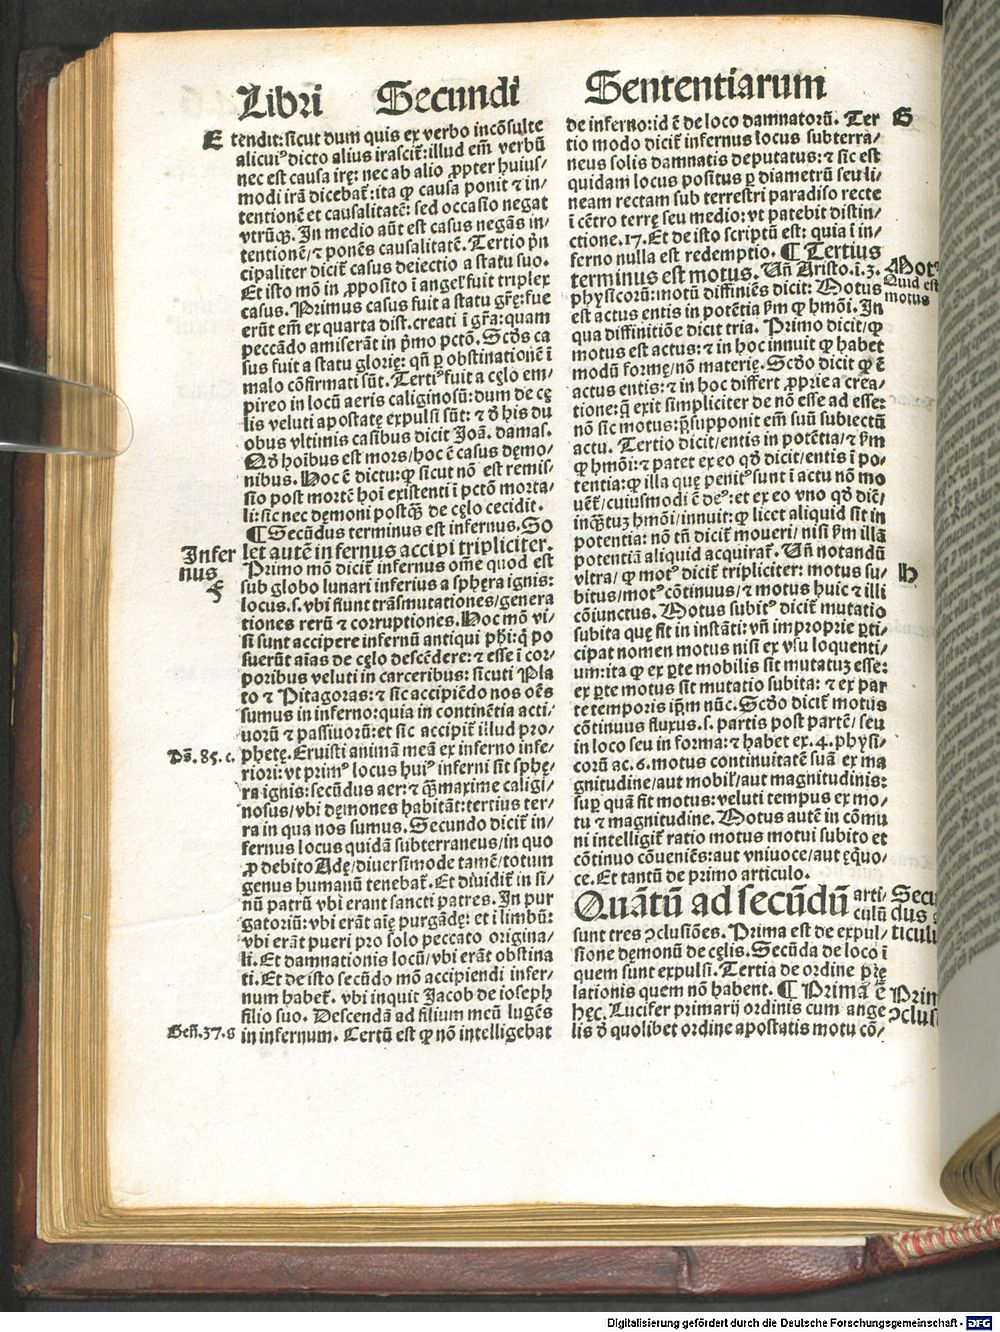 Libri Secundi Sententiarum
E
tendit: sicut dum quis ex verbo incōsulte
alicuiꝰ dicto alius irascit᷑: illud em̄ verbū
nec est causa irę: nec ab alio ꝓpter huius/
modi irā dicebat᷑: ita ꝙ causa ponit ⁊ in/
tentionē et causalitatē: sed occasio negat
vtrūqꝫ. In medio aūt est casus negās in/
tentionē/ ⁊ ponēs causalitatē. Tertio p̄n
cipaliter dicit᷑ casus deiectio a statu suo.
Et isto mō in ꝓposito i angel᷒ fuit triplex
casus. Primus casus fuit a statu gr̄ę: fue
erūt em̄ ex quarta dist. creati ī gr̄a: quam
peccādo amiserāt in p̄mo pctō. Scd̄s ca
sus fuit a statu glorię: qn̄ ꝑ obstinationē ī
malo cōfirmati sūt. Tertiꝰ fuit a cęlo em/
pireo in locū aeris caliginosū: dum de cę
lis veluti apostatę expulsi sūt: ⁊ d̄ his du
obus vltimis casibus dicit Joā. damas.
Qd̄ hoībus est mors/ hoc ē casus dęmo/
nibus. Hoc ē dictu: ꝙ sicut nō est remis/
sio post mortē hoī existenti ī pctō morta/
li: sic nec dęmoni postqꝫ̄ de cęlo cecidit.
¶ Secūdus terminus est infernus. So
Infer
nus
F
let autē in fernus accipi tripliciter.
Primo mō dicit᷑ infernus om̄e quod est
sub globo lunari inferius a sphęra ignis:
locus.s. vbi fiunt trāsmutationes/ genera
tiones rerū ⁊ corruptiones. Hoc mō vi/
si sunt accipere infernū antiqui phi: q̇ po
suerūt aīas de cęlo descēdere: ⁊ esse ī cor/
poribus veluti in carceribus: sicuti Pla
to ⁊ Pitagoras: ⁊ sic accipiēdo nos oēs
sumus in inferno: quia in continētia acti/
uorū ⁊ passiuorū: et sic accipit᷑ illud pro/
Ps̄. 85. c.
phetę. Eruisti animā meā ex inferno infe/
riori: vt primꝰ locus huiꝰ inferni sit sphę/
ra ignis: secūdus aer: ⁊ qꝫ̄ maxime caligi/
nosus/ vbi dęmones habitāt: tertius ter/
ra in qua nos sumus. Secundo dicit᷑ in/
fernus locus quidā subterraneus/ in quo
ꝓ debito Adę/ diuersimode tamē/ totum
genus humanū tenebat᷑. Et diuidit᷑ in si/
nū patrū vbi erant sancti patres. In pur
gatoriū: vbi erāt aię purgādę: et i limbū:
vbi erāt pueri pro solo peccato origina/
li. Et damnationis locū/ vbi erāt obstina
ti. Et de isto secūdo mō accipiendi infer/
num habet᷑. vbi inquit Jacob de ioseph
filio suo. Descendā ad filium meū lugēs
Gen̄. 37. g
in infernum. Certū est ꝙ nō intelligebat
de inferno: id ē de loco damnatorū. Ter
G
tio modo dicit᷑ infernus locus subterra/
neus solis damnatis deputatus: ⁊ sic est
quidam locus positus ꝑ diametrū seu li/
neam rectam sub terrestri paradiso recte
ī cētro terrę seu medio: vt patebit distin/
ctione. 17. Et de isto scriptū est: quia ī in/
ferno nulla est redemptio. ¶ Tertius
terminus est motus. Un̄ Aristo. ī. 3.
Motꝰ
Quid est
motus
physicorū: motū diffiniēs dicit: Motus
est actus entis in potētia ẜm ꝙ hmōi. In
qua diffinitiōe dicit tria. Primo dicit/ ꝙ
motus est actus: ⁊ in hoc innuit ꝙ habet
modū formę/ nō materię. Scd̄o dicit ꝙ ē
actus entis: ⁊ in hoc differt ꝓprie a crea/
tione: q̄ exit simpliciter de nō esse ad esse:
nō sic motus: p̄supponit em̄ suū subiectū
actu. Tertio dicit/ entis in potētia/ ⁊ ẜm
ꝙ hmōi: ⁊ patet ex eo qd̄ dicit/ entis ī po/
tentia: ꝙ illa quę penitꝰ sunt ī actu nō mo
uēt᷑/ cuiusmodi ē deꝰ: et ex eo vno qd̄ dic̄/
inqꝫ̄tuꝫ hmōi/ innuit: ꝙ licet aliquid sit in
potentia: nō tn̄ dicit᷑ moueri/ nisi ẜm illā
potentiā aliquid acquirat᷑. Un̄ notandū
H
vltra/ ꝙ motꝰ dicit᷑ tripliciter: motus su/
bitus/ motꝰ cōtinuus/ ⁊ motus huic ⁊ illi
cōiunctus. Motus subitꝰ dicit᷑ mutatio
subita quę fit in instāti: vn̄ improprie ꝑti/
cipat nomen motus nisi ex vsu loquenti/
um: ita ꝙ ex ꝑte mobilis sit mutatuꝫ esse:
ex ꝑte motus sit mutatio subita: ⁊ ex par
te temporis ip̄m nūc. Scd̄o dicit᷑ motus
cōtinuus fluxus.s. partis post partē/ seu
in loco seu in forma: ⁊ habet ex. 4. physi/
corū ac. 6. motus continuitatē suā ex ma
gnitudine/ aut mobil᷒/ aut magnitudinis:
suꝑ quā fit motus: veluti tempus ex mo/
tu ⁊ magnitudine. Motus autē in cōmu
ni intelligit᷑ ratio motus motui subito et
cōtinuo cōueniēs: aut vniuoce/ aut ęquo/
ce. Et tantū de primo articulo.
Quātū ad secūdū arti/
culū
Secu
dus
ticulu
sunt tres ↄclusiōes. Prima est de expul/
sione dęmonū de cęlis. Secūda de loco ī
quem sunt expulsi. Tertia de ordine prę
lationis quem nō habent. ¶ Prima ē
Prim
ↄclus
hęc. Lucifer primarij ordinis cum ange
lis d̄ quolibet ordine apostatis motu cō/
Digitalisierung gefördert durch die Deutsche Forschungsgemeinschaft - DFG